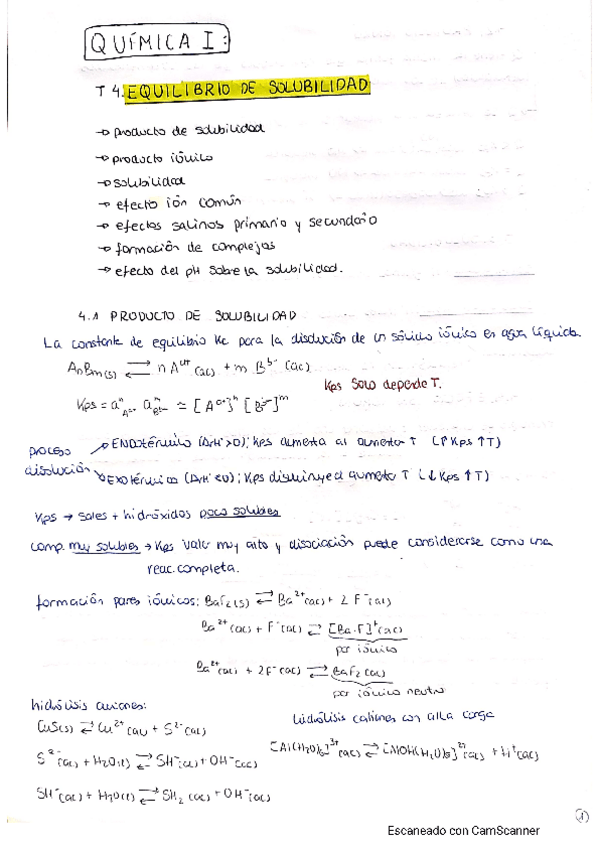 QUÍMICA I:
T 4. EQUILIBRIO DE SOLUBILIDAD
→ producto de solubilidad
→ producto iónico
→ solubilidad
→ efecto ión común
→ efectos salinos primario y secundario
→ formación de complejos
→ efecto del pH sobre la solubilidad.
4.1 PRODUCTO DE SOLUBILIDAD
La constante de equilibrio Kc para la disolución de un sólido iónico en agua líquida.
AnBm(s) ⇌ n Aᵃ⁺(ac) + m Bᵇ⁻(ac)
Kps solo depende T.
Kps = aⁿ_Aᵃ⁺ aᵐ_Bᵇ⁻ ≃ [Aᵃ⁺]ⁿ [Bᵇ⁻]ᵐ
proceso disolución
→ ENDOtérmico (ΔrH>0); Kps aumenta al aumentar T (↑Kps ↑T)
→ EXOtérmico (ΔrH<0); Kps disminuye al aumentar T (↓Kps ↑T)
Kps → sales + hidróxidos poco solubles
comp. muy solubles → Kps valor muy alto y disociación puede considerarse como una
reac. completa.
formación pares iónicos: BaF₂(s) ⇌ Ba²⁺(ac) + 2 F⁻(ac)
Ba²⁺(ac) + F⁻(ac) ⇌ [Ba·F]⁺(ac)
par iónico
Ba²⁺(ac) + 2F⁻(ac) ⇌ BaF₂(ac)
par iónico neutro
hidrólisis aniones:
hidrólisis cationes con alta carga
CuS(s) ⇌ Cu²⁺(ac) + S²⁻(ac)
[Al(H₂O)₆]³⁺(ac) ⇌ [AlOH(H₂O)₅]²⁺(ac) + H⁺(ac)
S²⁻(ac) + H₂O(l) ⇌ SH⁻(ac) + OH⁻(ac)
SH⁻(ac) + H₂O(l) ⇌ SH₂(ac) + OH⁻(ac)
①
Escaneado con CamScanner